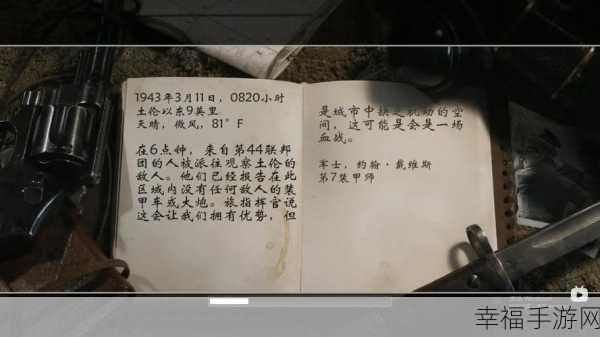 1943年3月11日，0820小时
土伦以东9英里
天晴，微风，81°F
在6点钟，来自第44联邦
团的人被派往观察土伦的
敌人。他们已经报告在此
区域内没有任何敌人的装
甲车或大炮。旅指挥官说
这会让我们拥有优势，但
是城市中缺乏机动的空
间，这可能是会是一场
血战。
军士，约翰·戴维斯
第7装甲师
Windows
幸福手游网